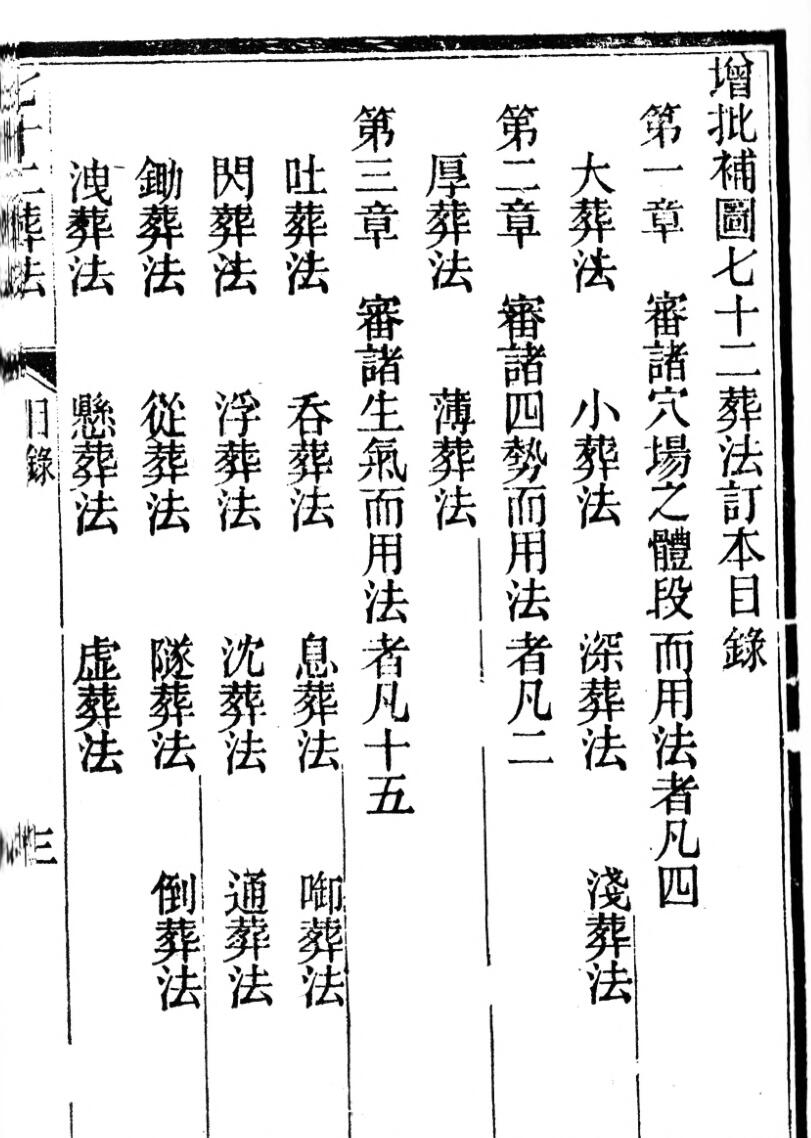 增批補圖七十二葬法訂本目錄
第一章 審諸穴場之體段而用法者凡四
大葬法 小葬法 深葬法 淺葬法
第二章 審諸四勢而用法者凡二
厚葬法 薄葬法
第三章 審諸生氣而用法者凡十五
吐葬法 吞葬法 息葬法 啣葬法
閃葬法 浮葬法 沈葬法 通葬法
鋤葬法 從葬法 隧葬法 倒葬法
洩葬法 懸葬法 虛葬法
七十二葬法 目錄 三